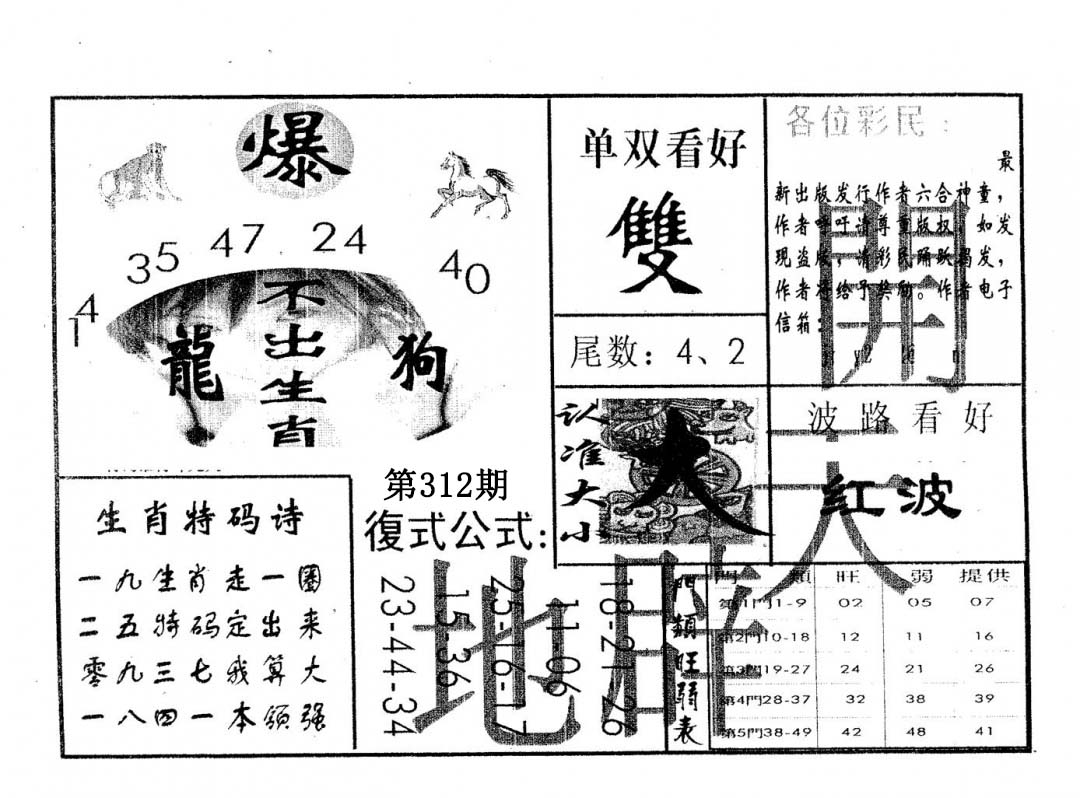 爆
14
35
47
24
40
不出生肖
龍
狗
单双看好
雙
尾数：4、2
各位彩民：
最
新出版发行作者六合神童，
作者呼吁请尊重版权，如发
现盗版，请彩民踊跃揭发，
作者将给予奖励。作者电子
信箱：
認准大小
大
波路看好
红波
開天地睢
第312期
復式公式:
23-44-34
15-36
25-16-17
11-06
18-21-26
生肖特码诗
一九生肖走一圈
二五特码定出来
零九三七我算大
一八四一本领强
門類旺弱表
門類 旺 弱 提供
第1門1-9 02 05 07
第2門10-18 12 11 16
第3門19-27 24 21 26
第4門28-37 32 38 39
第5門38-49 42 48 41